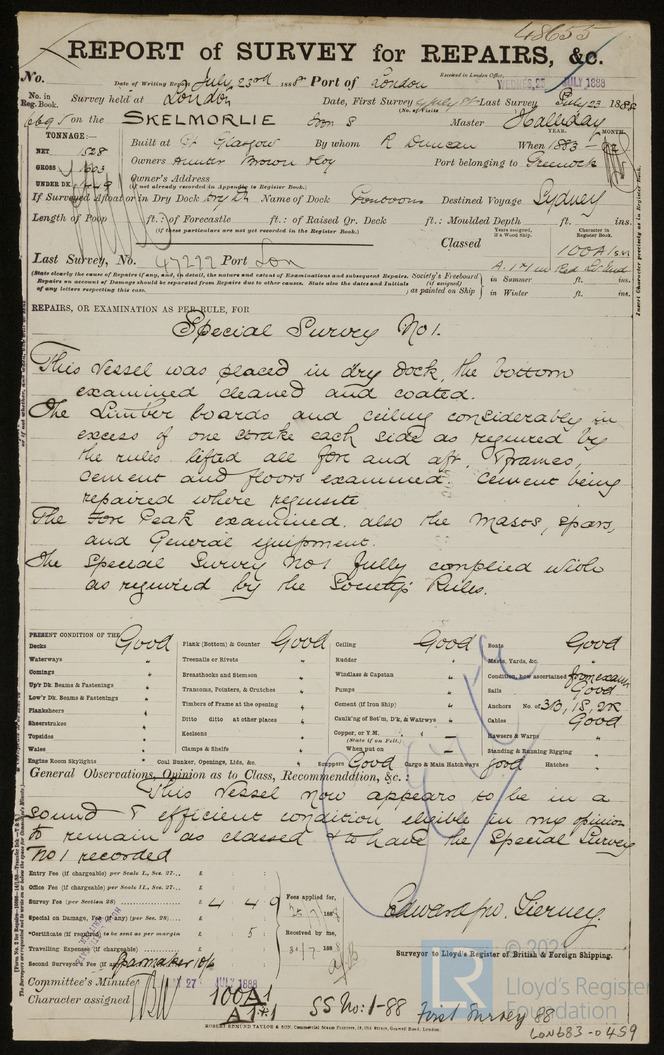 48655
REPORT of SURVEY for REPAIRS, &c.
No.
Date of Writing Report July 23rd 1888 Port of London
Received in London Office, WEDNES. 25 JULY 1888
No. in Reg. Book.
Survey held at London Date, First Survey 4 July 88 Last Survey July 23 1888
(No. of Visits)
6695 on the SKELMORLIE Iron S Master Halliday
TONNAGE:—
NET 1528
GROSS 1603
UNDER DK.
Built at Pt Glasgow By whom R Duncan When 1883
YEAR. MONTH.
Owners Hunter Brown Port belonging to Greenock
Owner's Address
(if not already recorded in Appendix to Register Book.)
If Surveyed Afloat or in Dry Dock Dry Dk Name of Dock Destined Voyage Sydney
Length of Poop ft.: of Forecastle ft.: of Raised Qr. Deck ft.: Moulded Depth ft. ins.
(if these particulars are not yet recorded in the Register Book.)
Years assigned, if a Wood Ship. Character in Register Book.
Classed 100A1
Last Survey, No. 47222 Port Lon
(State clearly the cause of Repairs if any, and, in detail, the nature and extent of Examinations and subsequent Repairs. Repairs on account of Damage should be separated from Repairs due to other causes. State also the dates and Initials of any letters respecting this case.
Society's Freeboard (if assigned) as painted on Ship
in Summer ft. ins.
in Winter ft. ins.
REPAIRS, OR EXAMINATION AS PER RULE, FOR
Special Survey No 1.
This Vessel was placed in dry dock, the bottom
examined cleaned and coated.
The Limber boards and ceiling considerably in
excess of one strake each side as required by
the rules lifted all fore and aft, Frames,
cement and floors examined. Cement being
repaired where requisite
The Fore Peak examined. also the Masts, Spars,
and General equipment.
The Special Survey No 1 fully complied with
as required by the Society's Rules.
PRESENT CONDITION OF THE
Decks Good
Waterways "
Comings "
Up'r Dk. Beams & Fastenings "
Low'r Dk. Beams & Fastenings "
Planksheers "
Sheerstrakes "
Topsides "
Wales "
Engine Room Skylights "
Plank (Bottom) & Counter Good
Treenails or Rivets "
Breasthooks and Stemson "
Transoms, Pointers, & Crutches "
Timbers of Frame at the opening "
Ditto ditto at other places "
Keelsons "
Clamps & Shelfs "
Coal Bunker, Openings, Lids, &c. "
Ceiling Good
Rudder "
Windlass & Capstan "
Pumps "
Cement (If Iron Ship) "
Caulk'ng of Bot'm, D'k, & Watrwys "
Copper, or Y.M.
(State if on Felt.)
When put on
Scuppers Good Cargo & Main Hatchways good Hatches "
Boats Good
Masts, Yards, &c. "
Condition, how ascertained from exam
Sails Good
Anchors No. of 3B, 1S, 2K
Cables Good
Hawsers & Warps "
Standing & Running Rigging "
General Observations, Opinion as to Class, Recommendation, &c. :
This Vessel now appears to be in a
sound & efficient condition eligible in my opinion
to remain as classed & to have the Special Survey
No 1 recorded
Entry Fee (if chargeable) per Scale I., Sec. 27... £ : :
Office Fee (if chargeable) per Scale II., Sec. 27... £ : :
Survey Fee (per Section 28) £ 4 4 0
Special on Damage, Fee (if any) (per Sec. 28)... £ : :
*Certificate (if required) to be sent as per margin £ : 5 :
Travelling Expenses (if chargeable) £ : :
Second Surveyor's Fee (if any) Sparmaker 10/6
Fees applied for, 25/7 1888
Received by me, 31/7 1888
Edward Tierney.
Surveyor to Lloyd's Register of British & Foreign Shipping.
Committee's Minute 27 JULY 1888
Character assigned 100A1
SS No: 1-88 First Survey 88
ROBERT EDMUND TAYLOR & SON, Commercial Steam Printers, 19, Old Street, Goswell Road, London.
LR
Lloyd's Register
Foundation
LON683-0459